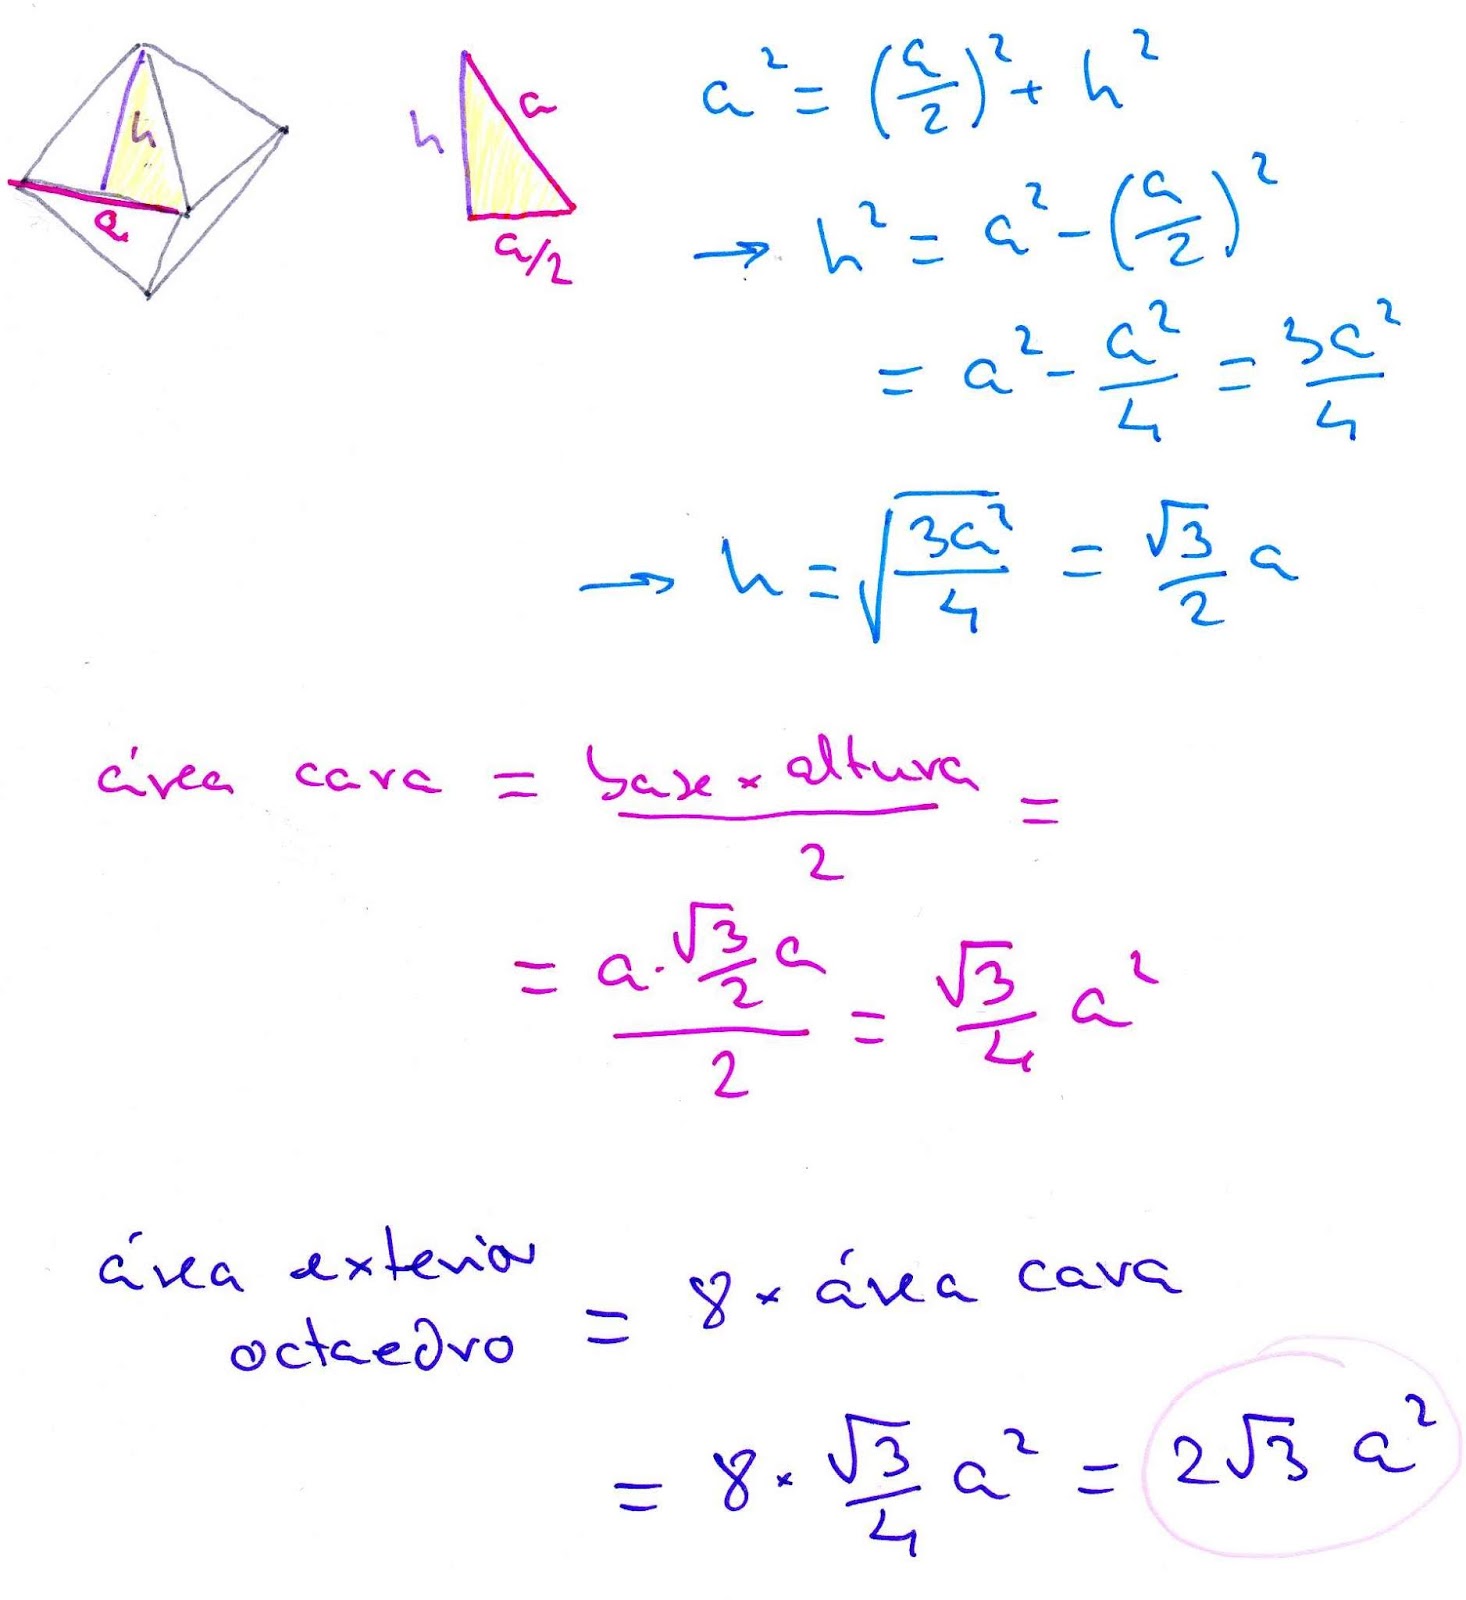 h
a
h
a
a/2
a² = (a/2)² + h²
→ h² = a² - (a/2)²
= a² - a²/4 = 3a²/4
→ h = √(3a²/4) = √3/2 a
área cara = base × altura / 2 =
= a · √3/2 a / 2 = √3/4 a²
área exterior
octaedro = 8 × área cara
= 8 × √3/4 a² = 2√3 a²